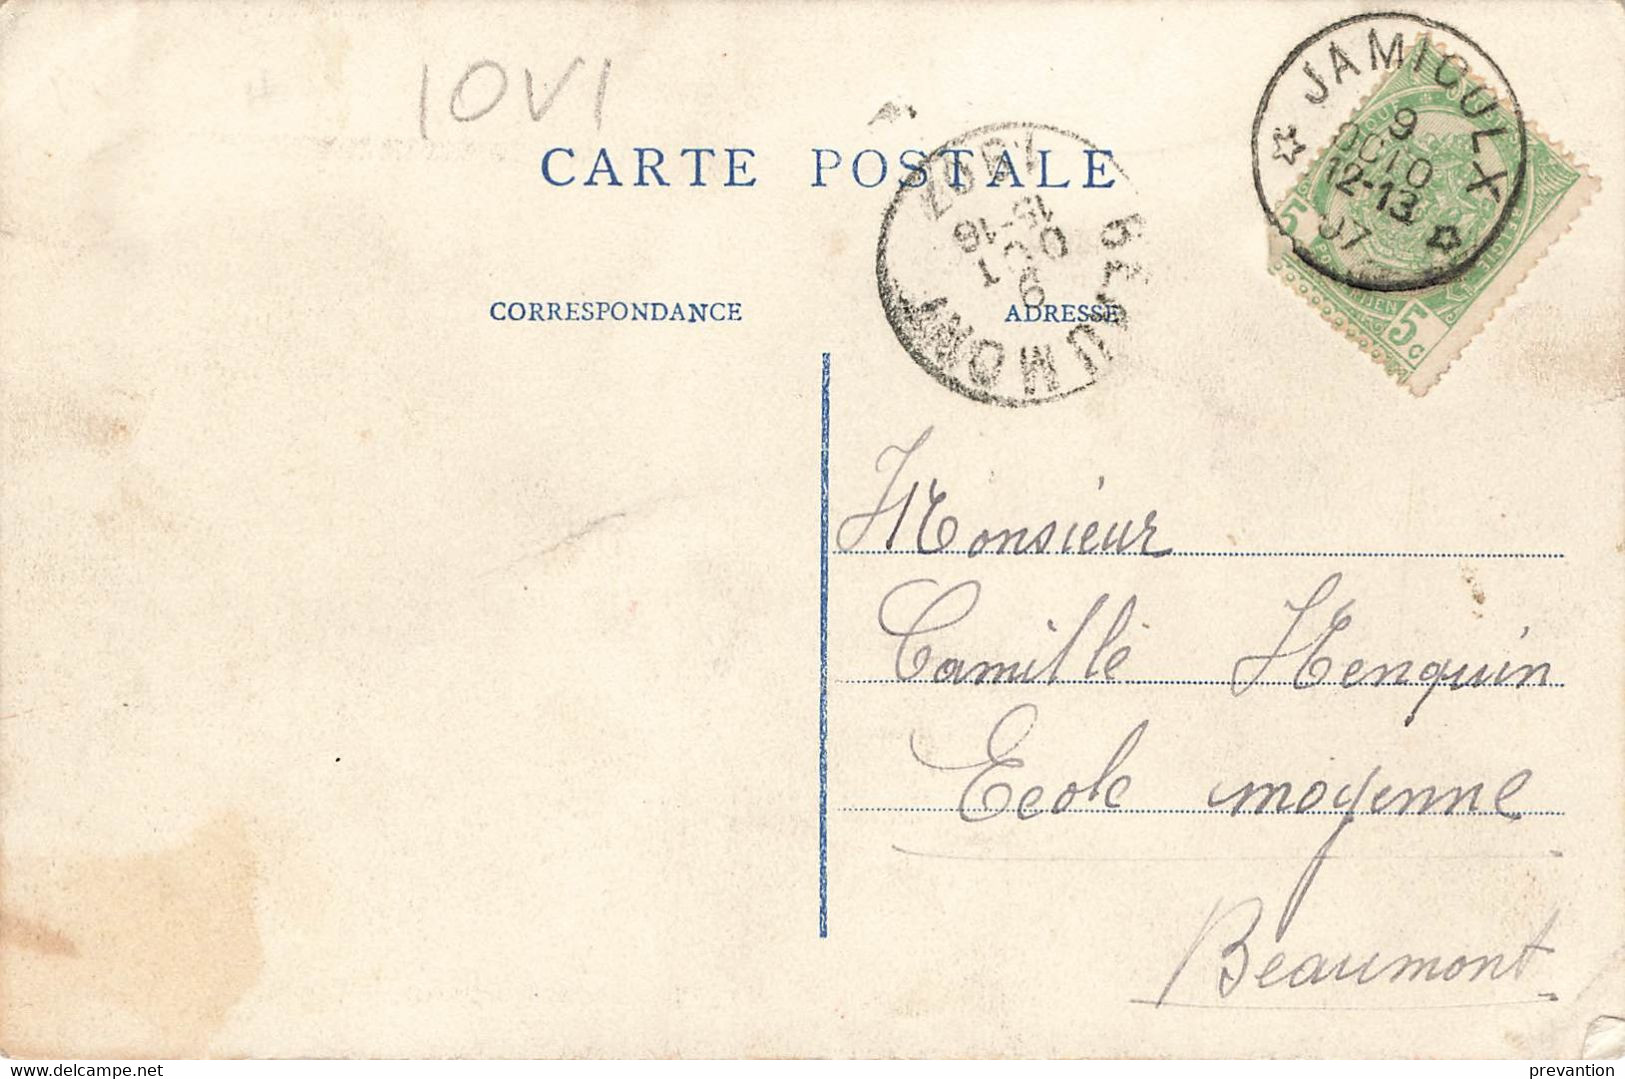 10VI
CARTE POSTALE
CORRESPONDANCE
ADRESSE
JAMIOULX
9
OCTO
12-13
07
BEAUMONT
9
OCTO
15-16
1907
5
5c
Monsieur
Camille Henquin
Ecole moyenne
Beaumont
www.delcampe.net
prevantion